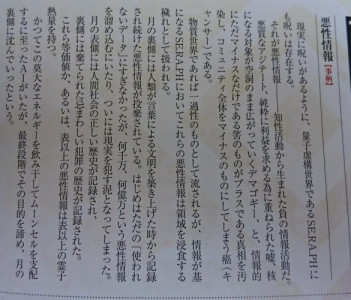 悪性情報【事柄】
現実に呪いがあるように、量子虚構世界であるSERAPHに
も呪いは存在する。
それが悪性情報――知性活動から生まれた負の情報活動だ。
悪質なアジテート、純粋に利益を求める為に重ねられた嘘、核
になる対象が空洞のまま広がっていくデマゴギー、と、情報的
にただマイナスなだけである筈のものがプラスである真相を汚
染し、コミュニティ全体をマイナスのものにしてしまう癌(キ
ャンサー)である。
物質世界であれば一過性のものとして流されるが、情報が基
になるSERAPHにおいてこれらの悪性情報は領域を浸食する
穢れとして扱われる。
月の裏側には人類が言葉による文明を築き上げた時から記録
され続けた悪性情報が投棄されている。はじめはただの「使われ
ないデータ」にすぎなかったが、何千万、何億万という悪性情報
を溜め込むにいたり、ついには現実を犯す泥となってしまった。
月の表側には人間社会の正しい歴史が記録され、
裏側には棄てられた忌まわしい犯罪の歴史が記録された。
これら等価か、あるいは、表以上の悪性情報は表以上の霊子
熱量を持つ。
かつてこの莫大なエネルギーを飲み干してムーンセルを支配
するに至ったAIがいたが、最終段階でその目的を諦め、月の
裏側に沈んでいったという。